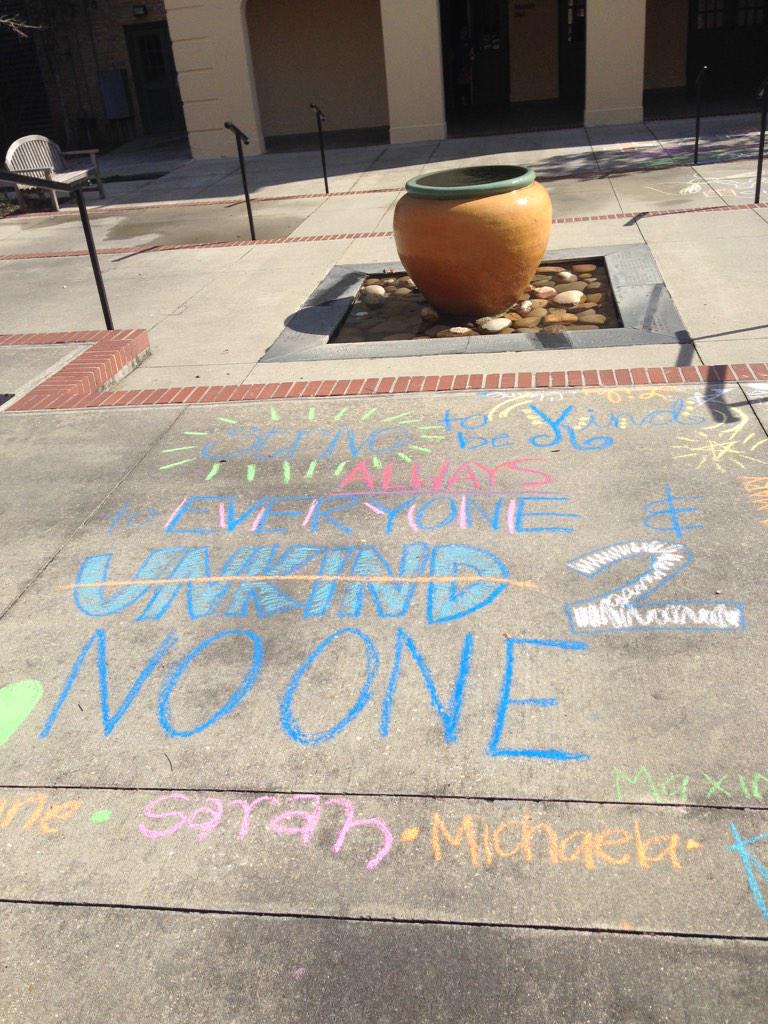 Strive to be Kind
ALWAYS
to EVERYONE &
UNKIND 2
NO ONE
Maxin
ne • Sarah • Michaela •